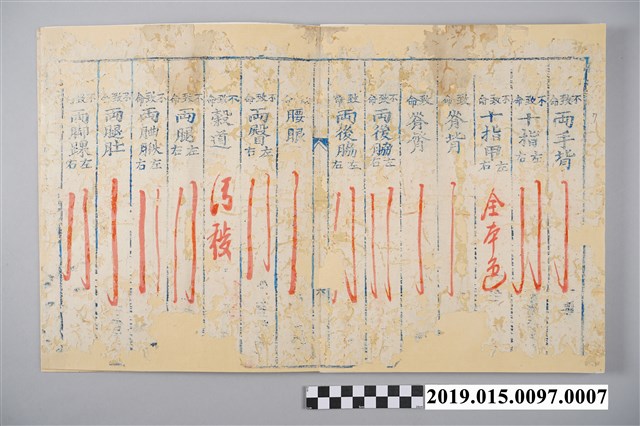 不致命兩手背
不致命十指左右
不致命十指甲左右 全本色
致命脊背
致命脊膂
不致命兩後脇左右
致命兩後脇左右
致命腰眼
不致命兩臀左右
不致命穀道 污穢
不致命兩腿左右
不致命兩䐐䏢左右
不致命兩腿肚
不致命兩脚踝左右
2019.015.0097.0007